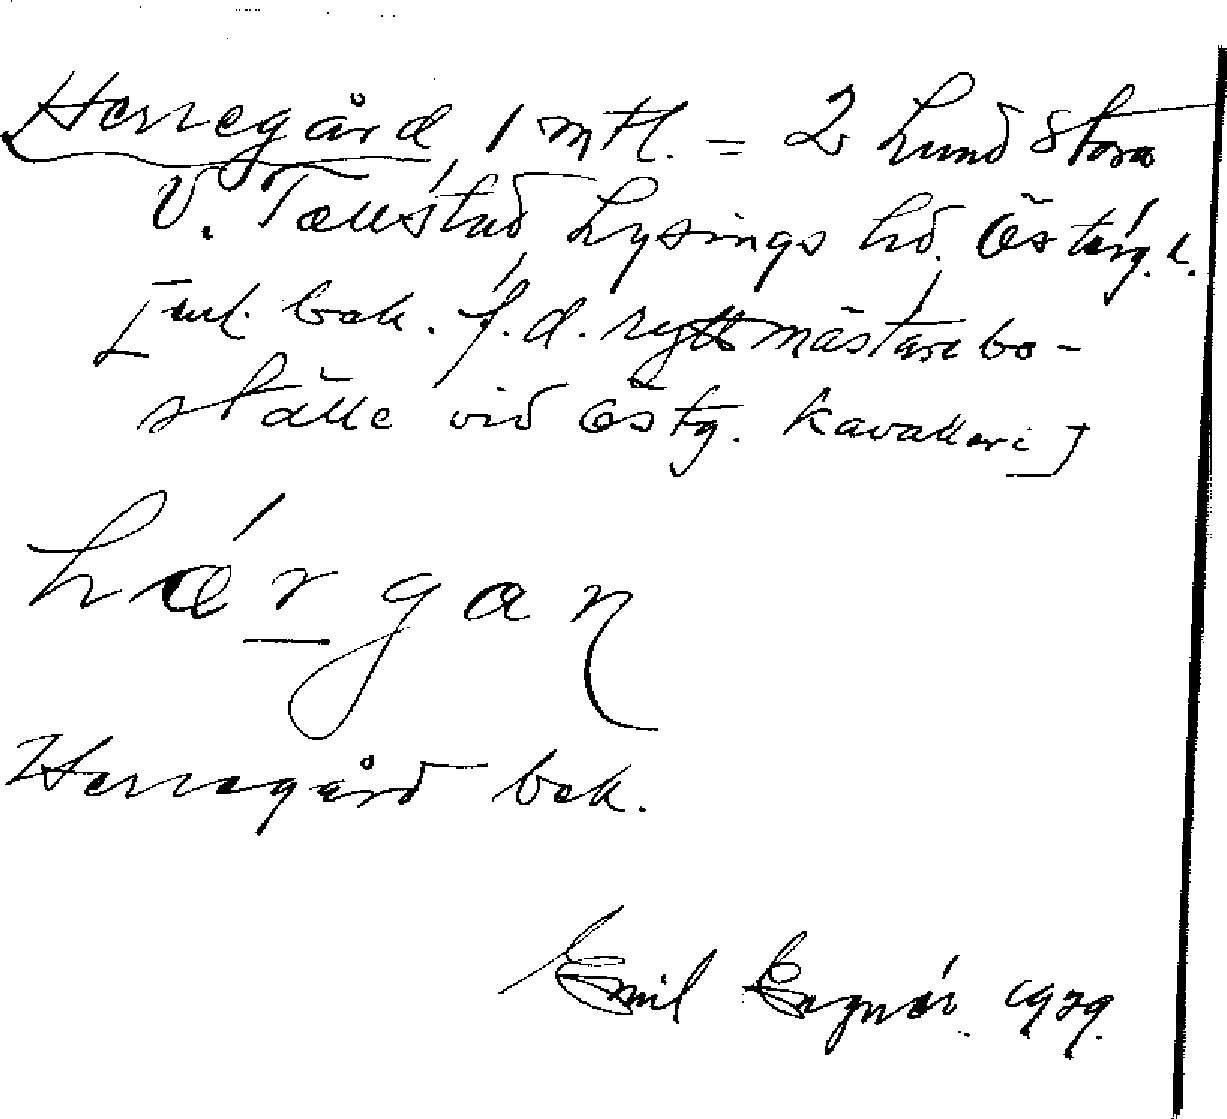 Herregård, 1 mtl. = 2 Lund Stora
V. Tollstad Lysings hd. Österg. l.
[enl. bek. f.d. ryttmästarebo-
ställe vid Östg. kavalleri]
hærgan
Herregård bek.
Emil 1929.